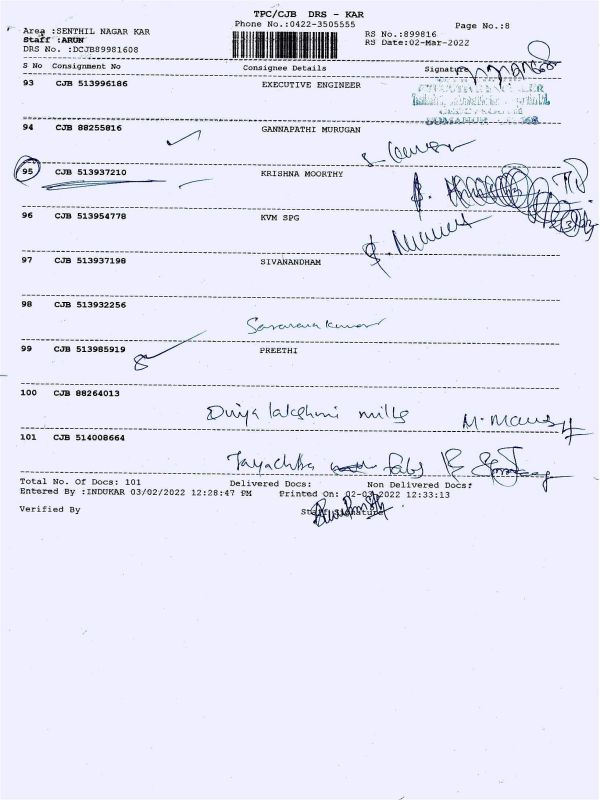 TPC/CJB DRS - KAR
Phone No.:0422-3505555 Page No.:8
Area :SENTHIL NAGAR KAR RS No.:899816
Staff :ARUN RS Date:02-Mar-2022
DRS No. :DCJB89981608
S No Consignment No Consignee Details Signature
93 CJB 513996186 EXECUTIVE ENGINEER
94 CJB 88255816 GANNAPATHI MURUGAN
95 CJB 513937210 KRISHNA MOORTHY
96 CJB 513954778 KVM SPG
97 CJB 513937198 SIVANANDHAM
98 CJB 513932256
Saravana kumar
99 CJB 513985919 PREETHI
100 CJB 88264013
Divya lakshmi mills
101 CJB 514008664
Total No. Of Docs: 101 Delivered Docs: Non Delivered Docs:
Entered By :INDUKAR 03/02/2022 12:28:47 PM Printed On: 02-03-2022 12:33:13
Verified By Staff Signature